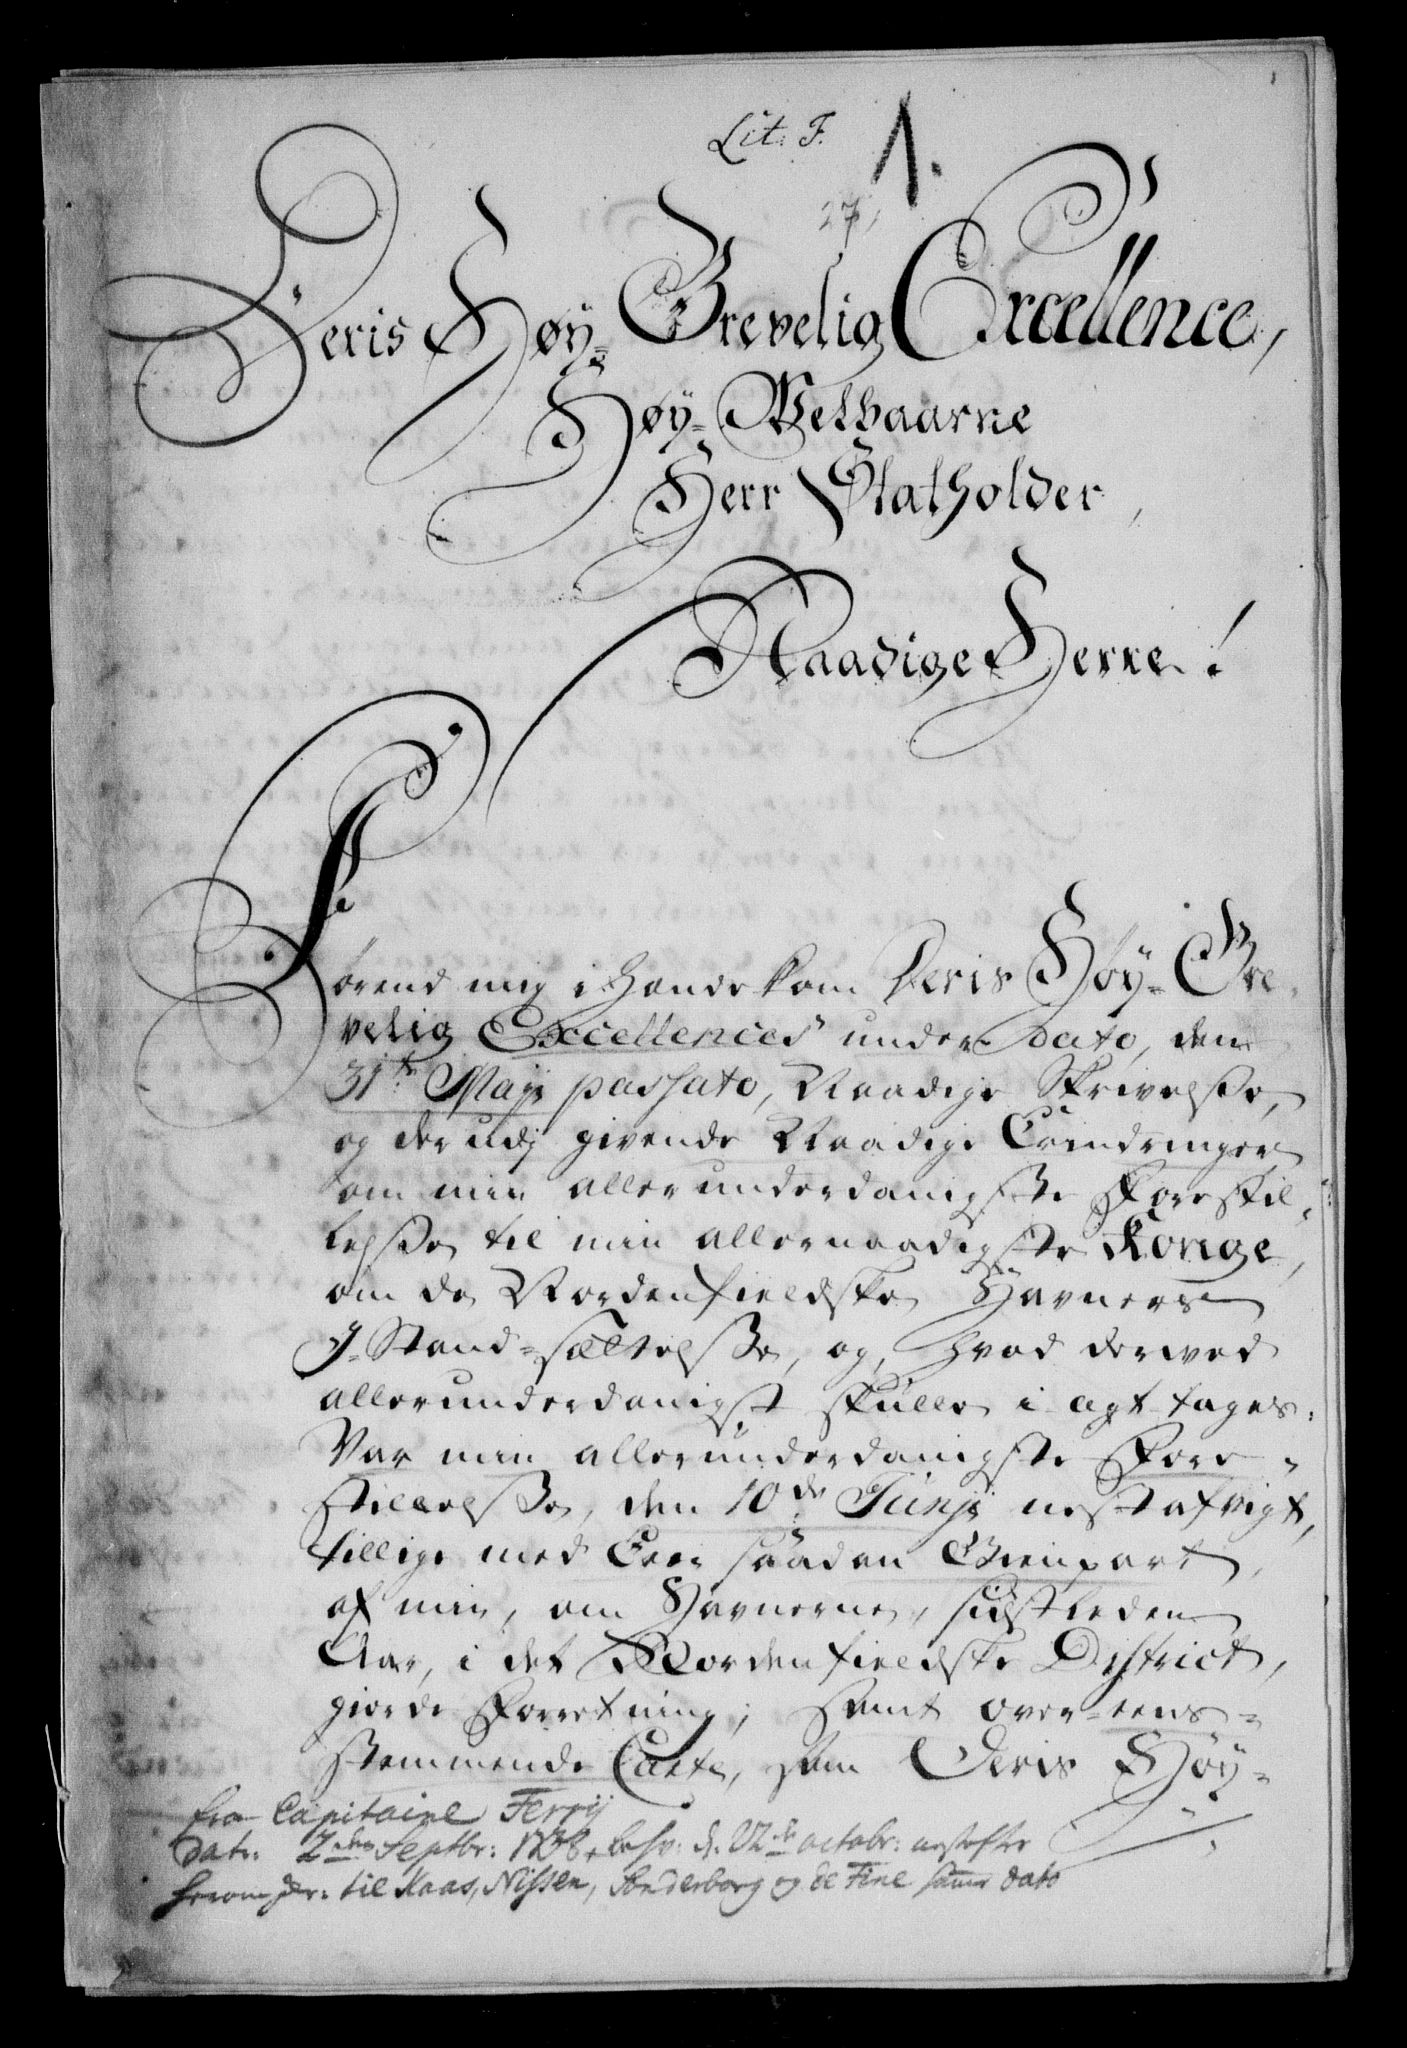 Lit: F.
1.
27,
Deris Høy-Grevelig Excellence,
Høy-Welbaarne
Herr Statholder,
Naadige Herre!
Førend mig i Hænde kom Deris Høy-Gre-
velig Excellences under Dato, den
31te Maji passato, Naadige Skrivelsse,
og derudj givende Naadige Erindringer
om min allerunderdanigste Forestil-
lelsse til min allernaadigste Konge,
om de Nordenfieldske Havners
J-Stand-sættelsse, og, hvad derved
allerunderdanigst skulle i agt tages:
Var min allerunderdanigste Fore-
stillelsse, den 10de Junji nest afvigt,
tillige med Een saadan Gienpart
af min, om Havnerne, sidstleden
Aar, i det Nordenfieldske District,
giorde Forretning; samt over-eens-
stemmende Carte, som Deris Høy-
fra Capitaine Ferrij
Dat: 2den Septbr: 1738, besv: d. 22de octobr: nestefter
til Kaas, Nissen, Sønderborg og de Fine samme dato